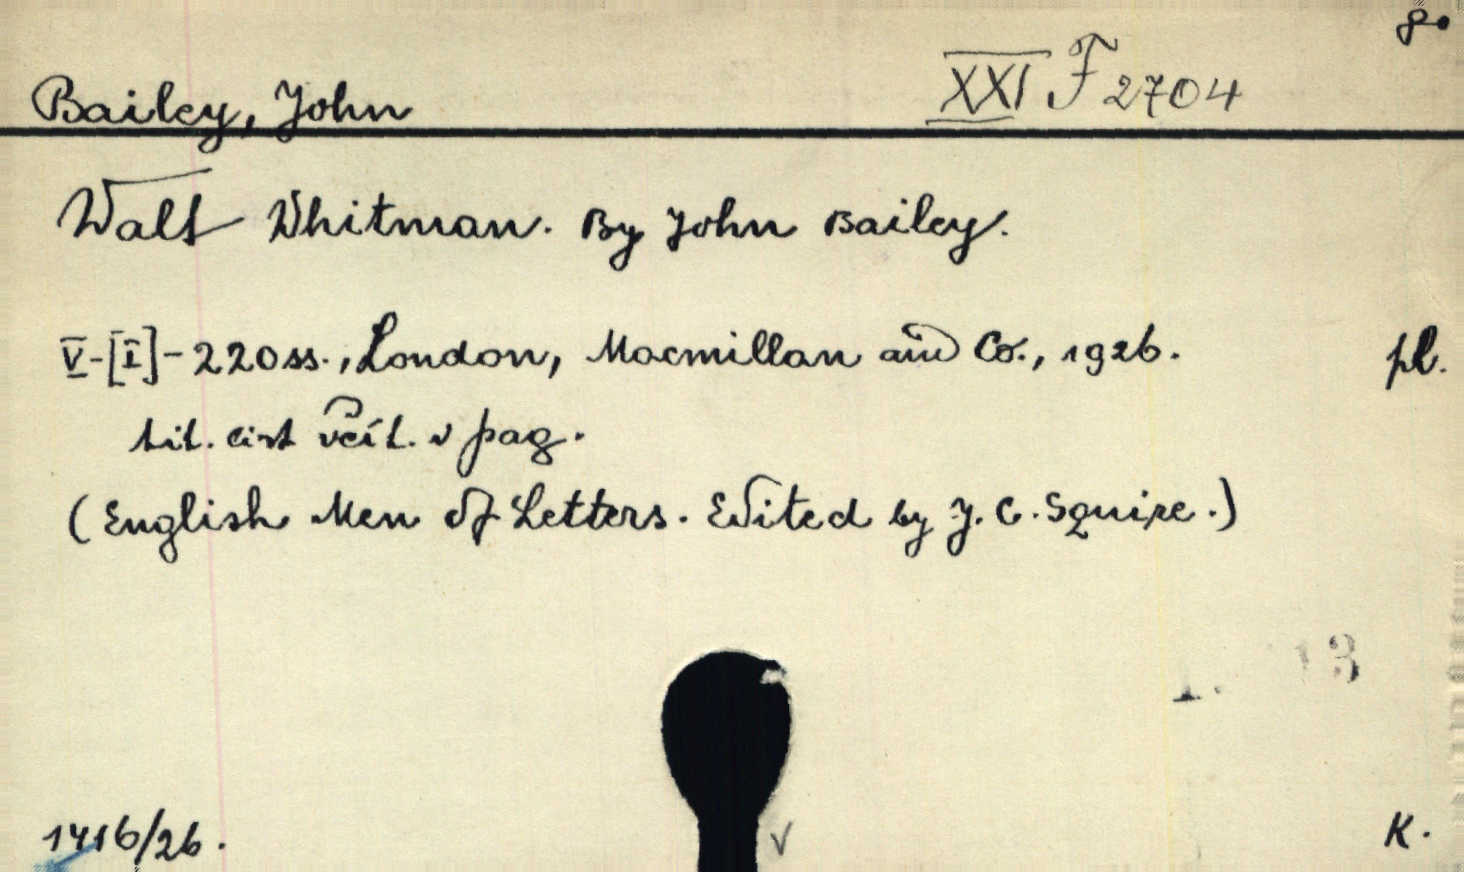 8°
Bailey, John
XXI F 2704
Walt Whitman. By John Bailey.
V-[I]-220 ss., London, Macmillan and Co., 1926.
pl.
tit. list včít. v pag.
(English Men Of Letters. Edited by J. C. Squire.)
1416/26.
K.